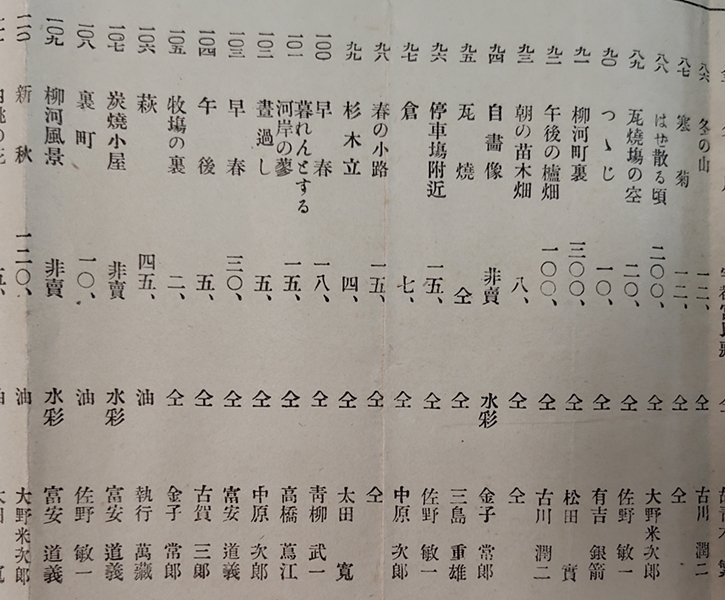 八六 冬の山 一二、 仝 古川 潤二
八七 寒菊 一二、 仝 仝
八八 はぜ散る頃 二〇〇、 仝 大野米次郎
八九 瓦焼塲の空 二〇、 仝 佐野 敏一
九〇 つゝじ 一〇、 仝 有吉 銀箭
九一 柳河町裏 三〇〇、 仝 松田 實
九二 午後の櫨畑 一〇〇、 仝 古川 潤二
九三 朝の苗木畑 八、 仝 仝
九四 自畵像 非賣 水彩 金子 常郎
九五 瓦燒 仝 仝 三島 重雄
九六 停車塲附近 一五、 仝 佐野 敏一
九七 倉 七、 仝 中原 次郎
九八 春の小路 一五、 仝 仝
九九 杉木立 四、 仝 太田 寛
一〇〇 早春 一八、 仝 靑柳 武一
一〇一 暮れんとする河岸の蓼 一五、 仝 高橋 蔦江
一〇二 晝過し 五、 仝 中原 次郎
一〇三 早春 三〇、 仝 富安 道義
一〇四 午後 五、 仝 古賀 三郎
一〇五 牧塲の裏 二、 仝 金子 常郎
一〇六 萩 四五、 油 執行 萬藏
一〇七 炭燒小屋 非賣 水彩 富安 道義
一〇八 裏町 一〇、 油 佐野 敏一
一〇九 柳河風景 非賣 水彩 富安 道義
一一〇 新秋 一二〇、 油 大野米次郎